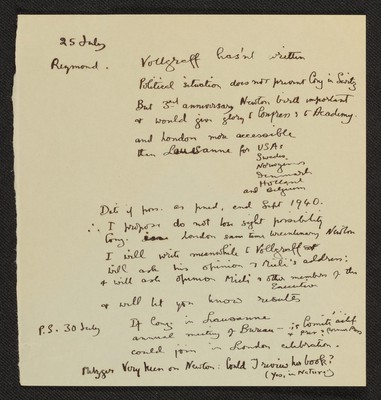 25 July
Reymond. Vollgraff hasn't written
Political situation does not prevent Cong in Switz
But 3rd anniversary Newton birth important
& would give glory to Congress & to Academy.
and London more accessible
than Lausanne for USA &
Sweden,
Norwegians
Denmark
Holland
and Belgium
Date if poss. as prev, end Sept 1940.
∴ I propose do not lose sight possibility
Cong. London same time tercentenary Newton
I will write meanwhile to Vollgraff
will ask his opinion & Mieli's address;
& will ask opinion Mieli & other members of the
Executive
& will let you know results
P.S. 30 July If Cong in Lausanne
annual meeting of Bureau —
could join in London celebration.
Metzger Very keen on Newton. Could I review his book?
(Yes, in Nature)